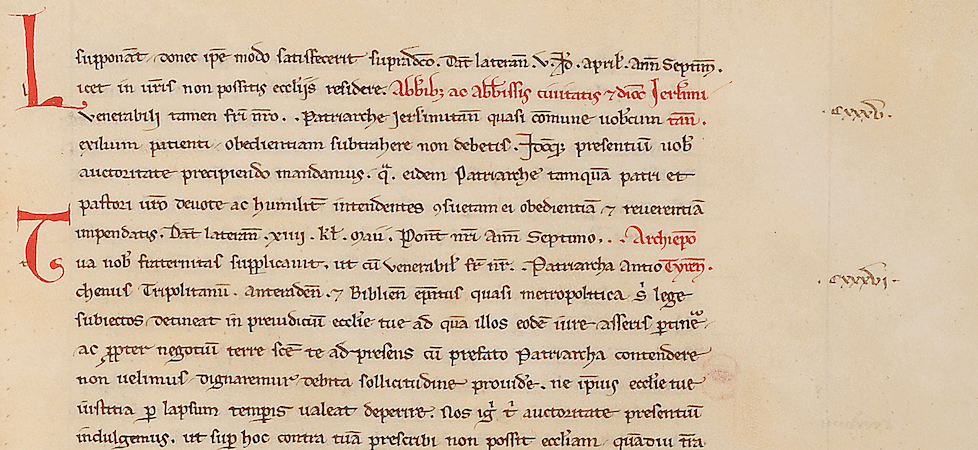 supponat. donec ipe modo satisfecerit supradco. Dat lateran. v. Id. april. Ann Septimo.
Licet in uris non possitis ecclijs residere. Abbibz ac abbissis ciuitatis ⁊ dioc Ierlimi
Venerabili tamen fri nro. . Patriarche Ierlimitan quasi comune uobcum tan. . cxxxv.
exilium patienti. obedientiam subtrahere non debetis. Idcqz presentiu uob
auctoritate precipiendo mandamus. q. eidem Patriarche tamqua patri et
pastori uro deuote ac humilit intendentes ꝯsuetam ei obedientia ⁊ reuerentia
impendatis. Dat lateran. xiiii. kl. Maii. Pont nri Ann Septimo. . Archiepo
Tua nob fraternitas supplicauit. ut cu venerabil fr nr. . Patriarcha Antio Tyren. . cxxxvi.
chenus Tripolitanu. Anteraden. ⁊ Biblien epatus quasi metropolitica s lege
subiectos detineat in preiudiciu ecclie tue ad qua illos eode iure asseris ptine
ac ppter negotiu terre sce te ad presens cu prefato Patriarcha contendere
non uelimus. dignaremur debita sollicitudine prouide. ne ipius ecclie tue
iustitia p lapsum tempis ualeat deperire. Nos ig t auctoritate presentiu
indulgemus. ut sup hoc contra tua prescribi non possit eccliam. quadiu tra